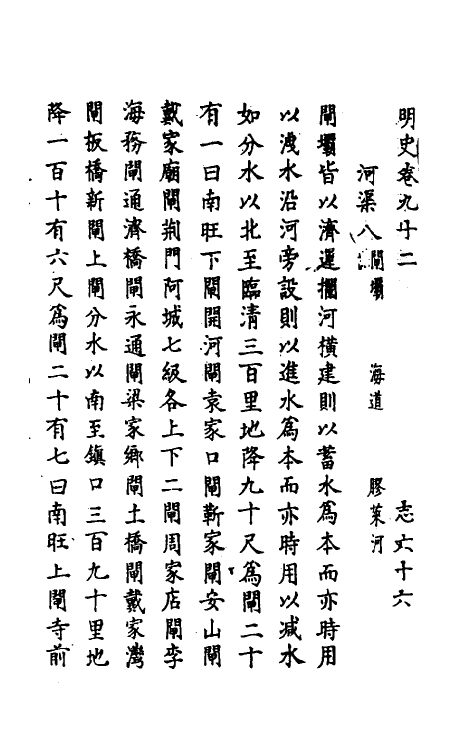 明史卷九十二　志六十六
河渠八　閘壩　海道　膠萊河
閘壩皆以濟運攔河橫建則以蓄水爲本而亦時用
以洩水沿河旁設則以進水爲本而亦時用以減水
如分水以北至臨清三百里地降九十尺爲閘二十
有一曰南旺下閘開河閘袁家口閘靳家閘安山閘
戴家廟閘荆門阿城七級各上下二閘周家店閘李
海務閘通濟橋閘永通閘梁家鄉閘土橋閘戴家灣
閘板橋新閘上閘分水以南至鎮口三百九十里地
降一百十有六尺爲閘二十有七曰南旺上閘寺前